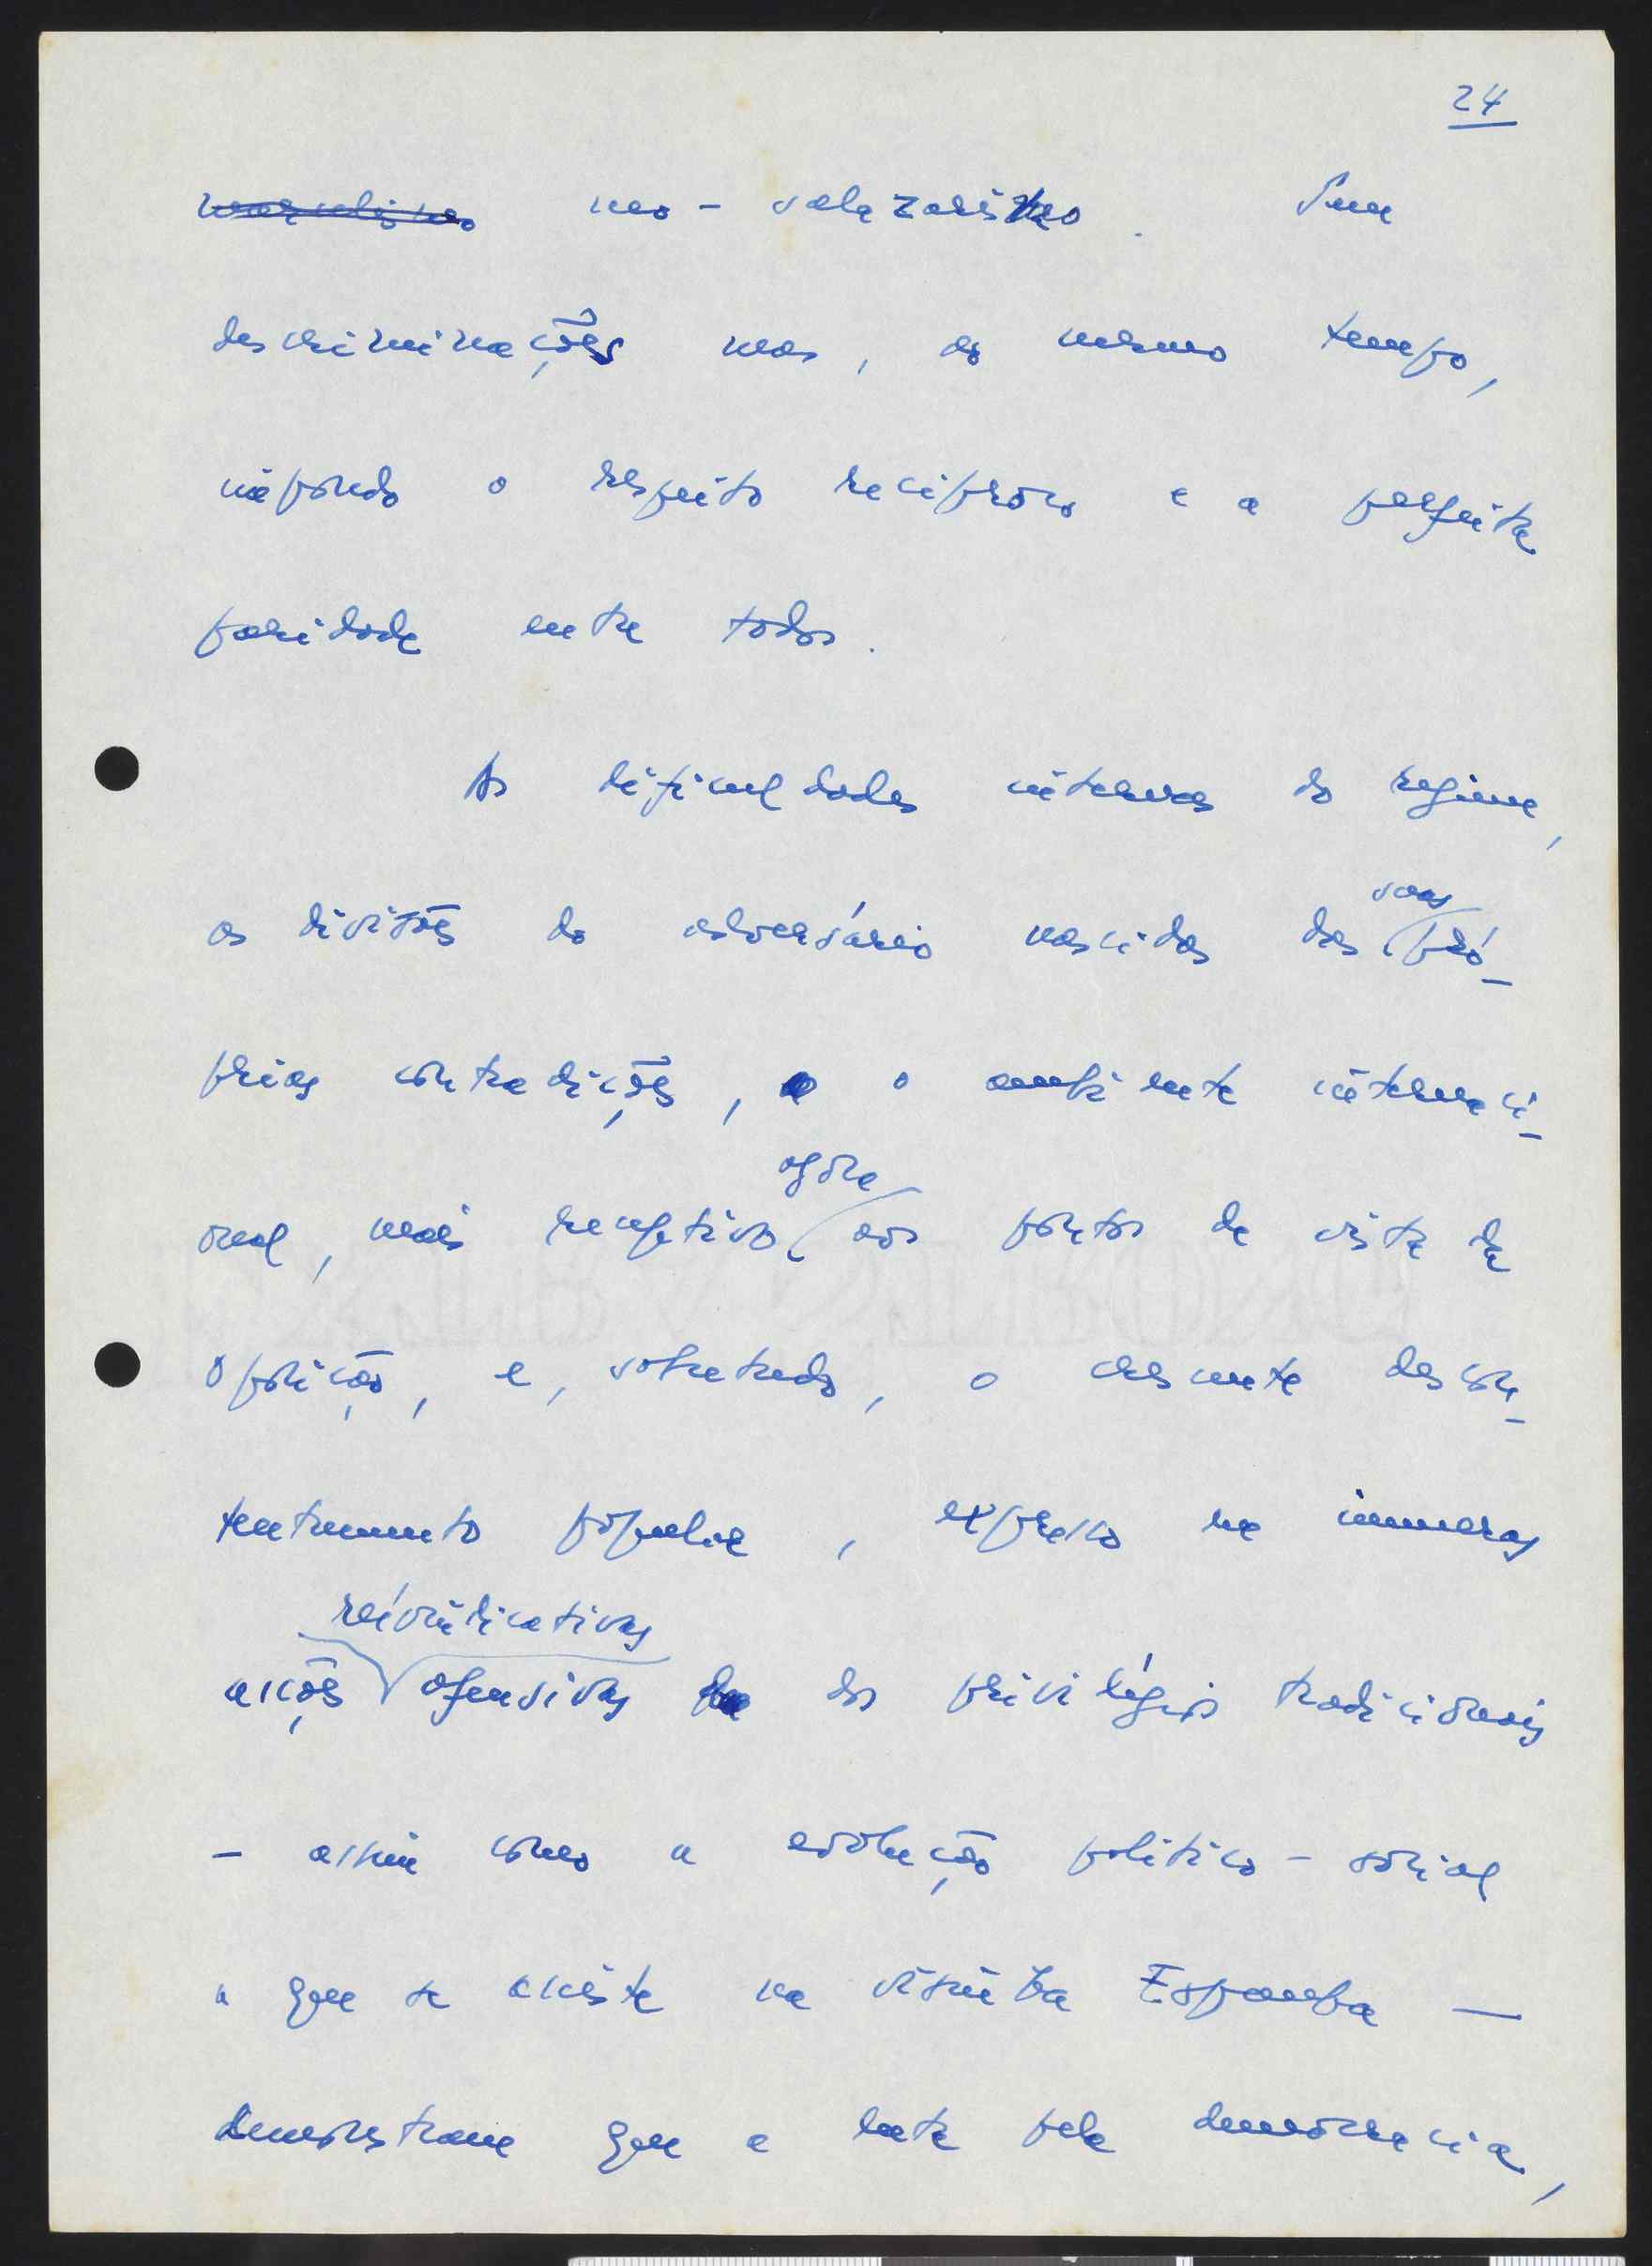 24
marcelismo neo-salazarismo. Sem
descriminações mas, ao mesmo tempo,
impondo o respeito reciproco e a perfeita
paridade entre todos.
As dificuldades internas do regime,
as divisões do adversário nascidas das suas pró-
prias contradições, o ambiente internaci-
onal, mais receptivo agora aos pontos de vista da
oposição, e, sobretudo, o crescente descon-
tentamento popular, expresso na inumeras
acções reivindicativas ofensivas dos privilégios tradicionais
- assim como a evolução politico-social
a que se assiste na visinha Espanha -
demonstram que a luta pela democracia,